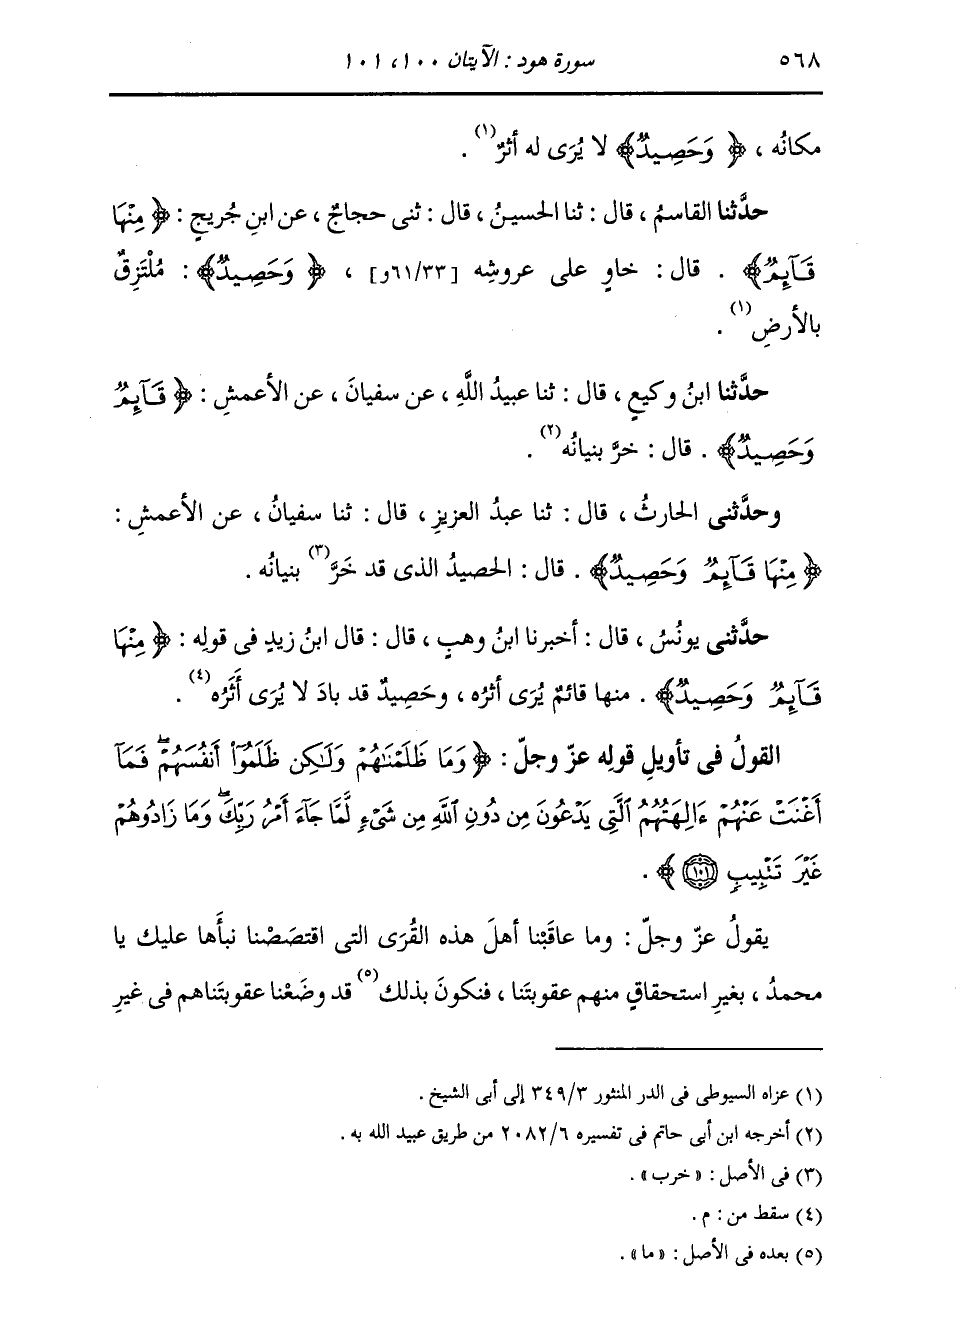 ٥٦٨ سورة هود : الآيتان ١٠٠، ١٠١
مكانُه ، ﴿ وَحَصِيدٌ ﴾ لا يُرَى له أثرٌ (١) .
حدَّثنا القاسمُ ، قال : ثنا الحسينُ ، قال : ثنى حجاجٌ ، عن ابنِ جُريجٍ : ﴿ مِنْهَا
قَآئِمٌ ﴾ . قال : خاوٍ على عروشِه [٦١/٣٣و] ، ﴿ وَحَصِيدٌ ﴾ : مُلْتَزِقٌ
بالأرضِ (١) .
حدَّثنا ابنُ وكيعٍ ، قال : ثنا عبيدُ اللَّهِ ، عن سفيانَ ، عن الأعمشِ : ﴿ قَآئِمٌ
وَحَصِيدٌ ﴾ . قال : خرَّ بنيانُه (٢) .
وحدَّثنى الحارثُ ، قال : ثنا عبدُ العزيزِ ، قال : ثنا سفيانُ ، عن الأعمشِ :
﴿ مِنْهَا قَآئِمٌ وَحَصِيدٌ ﴾ . قال : الحصيدُ الذى قد خَرَّ (٣) بنيانُه .
حدَّثنى يونُسُ ، قال : أخبرنا ابنُ وهبٍ ، قال : قال ابنُ زيدٍ فى قولِه : ﴿ مِنْهَا
قَآئِمٌ وَحَصِيدٌ ﴾ . منها قائمٌ يُرَى أثرُه ، وحَصِيدٌ قد بادَ لا يُرَى أَثَرُه (٤) .
القولُ فى تأويلِ قولِه عزّ وجلّ : ﴿ وَمَا ظَلَمْنَٰهُمْ وَلَٰكِن ظَلَمُوٓا۟ أَنفُسَهُمْ ۖ فَمَآ
أَغْنَتْ عَنْهُمْ ءَالِهَتُهُمُ ٱلَّتِى يَدْعُونَ مِن دُونِ ٱللَّهِ مِن شَىْءٍ لَّمَّا جَآءَ أَمْرُ رَبِّكَ ۖ وَمَا زَادُوهُمْ
غَيْرَ تَتْبِيبٍ ﴿١٠١﴾ ﴾ .
يقولُ عزّ وجلّ : وما عاقَبْنا أهلَ هذه القُرَى التى اقتصَصْنا نبأَها عليك يا
محمدُ ، بغيرِ استحقاقٍ منهم عقوبتَنا ، فنكونَ بذلك (٥) قد وضَعْنا عقوبتَناهم فى غيرِ
(١) عزاه السيوطى فى الدر المنثور ٣٤٩/٣ إلى أبى الشيخ .
(٢) أخرجه ابن أبى حاتم فى تفسيره ٢٠٨٢/٦ من طريق عبيد الله به .
(٣) فى الأصل : « خرب » .
(٤) سقط من : م .
(٥) بعده فى الأصل : « ما » .